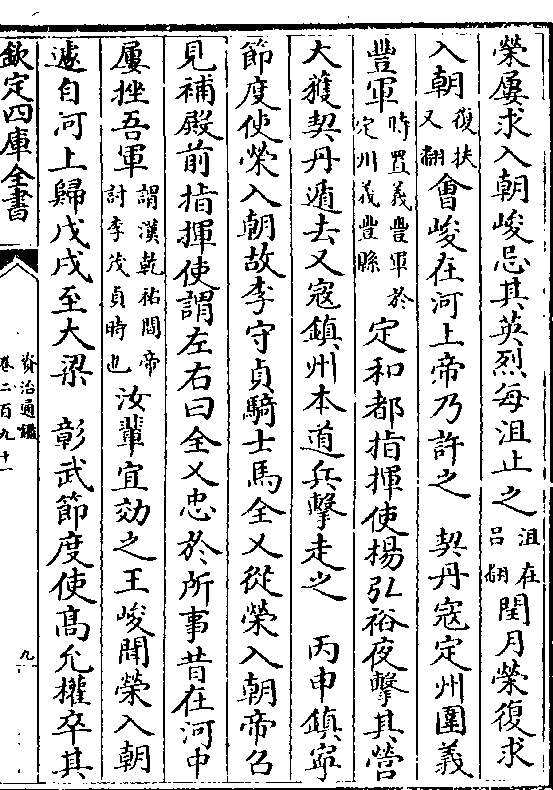 榮屢求入朝峻忌其英烈每沮止之沮在呂翻閏月榮復求
入朝復扶又翻會峻在河上帝乃許之 契丹寇定州圍義
豐軍時置義豐軍於定州義豐縣定和都指揮使楊弘裕夜擊其營
大獲契丹遁去又寇鎮州本道兵擊走之 丙申鎮寧
節度使榮入朝故李守貞騎士馬全乂從榮入朝帝召
見補殿前指揮使謂左右曰全乂忠於所事昔在河中
屢挫吾軍謂漢乾祐間帝討李茂貞時也汝輩宜効之王峻聞榮入朝
遽自河上歸戊戌至大梁 彰武節度使高允權卒其
欽定四庫全書
資治通鑑
卷二百九十一
九